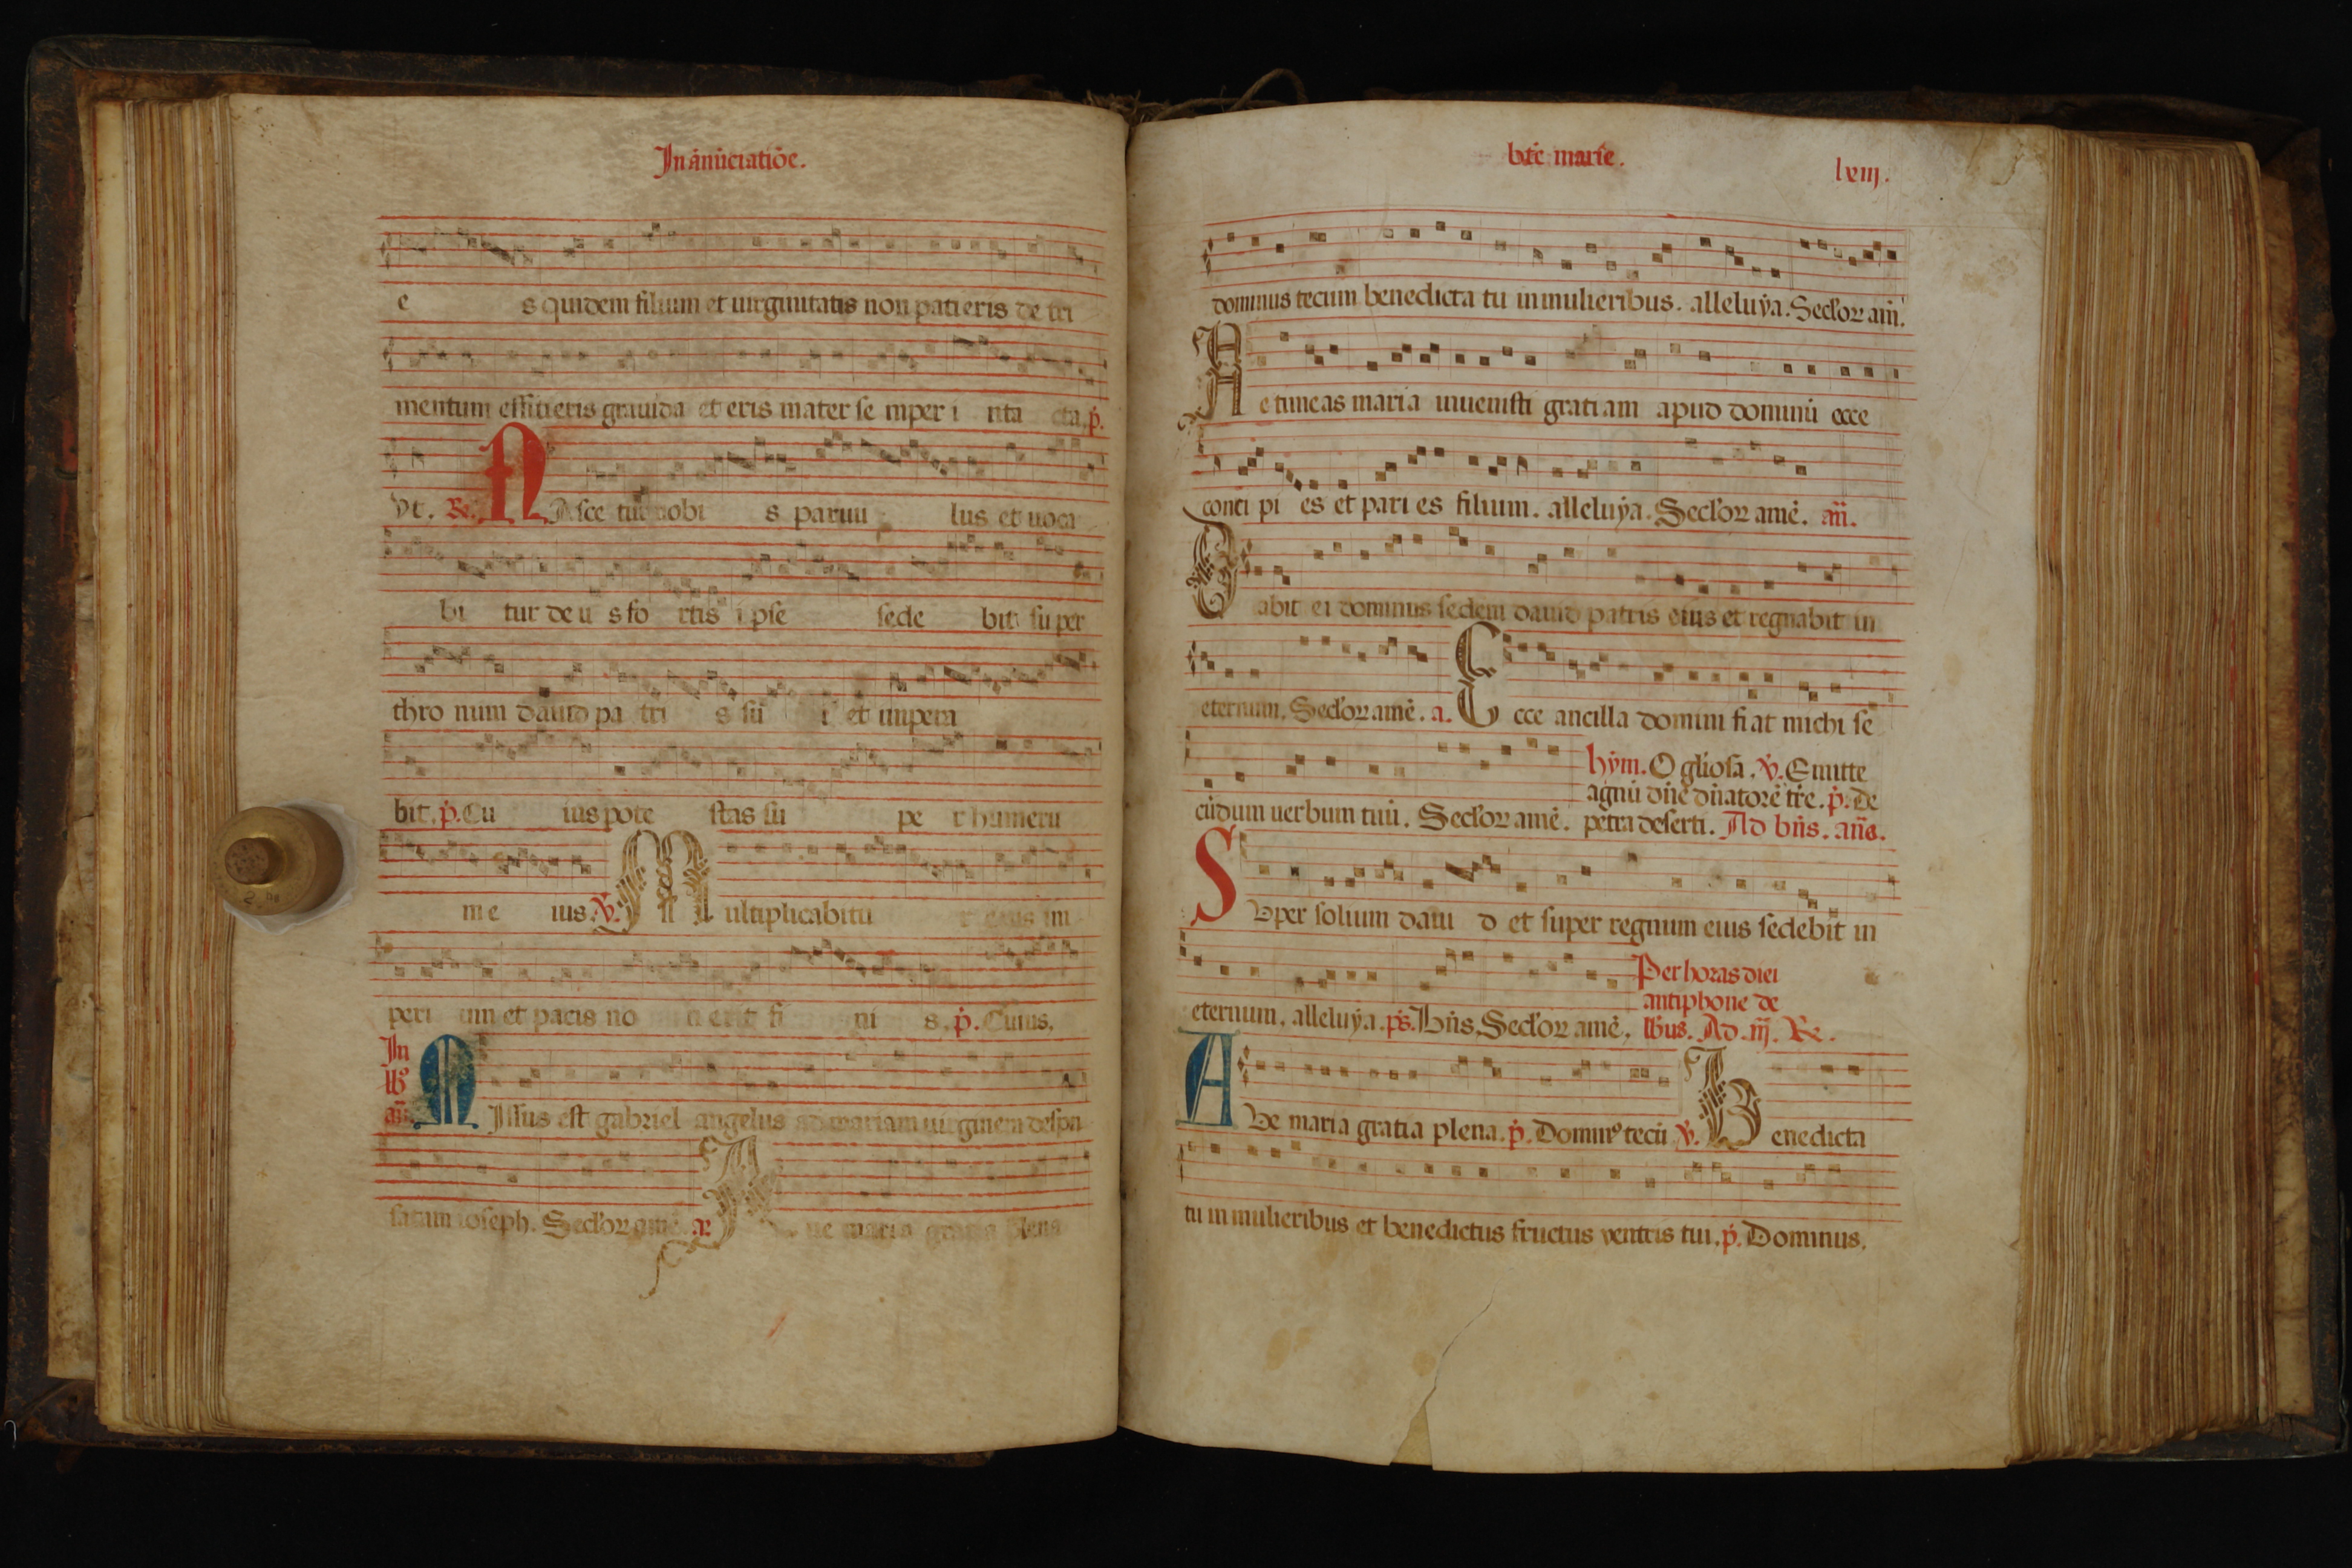 In ānūciatiōe.
e s quidem filium et uirginitatis non patieris de tri
mentum efficieris grauida et eris mater se mper i nta cta. p̄.
vt. R. N Asce tur nobi s paruu lus et uoca
bi tur de u s fo rtis i pse sede bit su per
thro num dauid pa tri s su i et impera
bit. p̄. Cu ius pote stas su pe r humeru
me ius. v̄. M ultiplicabitu r eius im
peri um et pacis no n erit fi ni s. p̄. Cuius.
In lb9 añ. M Issus est gabriel angelus ad mariam uirginem despō
satam ioseph. Secl'oꝝ amē. a. A ue maria gratia plena
btē marie. lxiij.
dominus tecum benedicta tu in mulieribus. alleluya. Secl'oꝝ am̄.
N e timeas maria inuenisti gratiam apud dominū ecce
conci pi es et pari es filium. alleluya. Secl'oꝝ amē. añ.
D abit ei dominus sedem dauid patris eius et regnabit in
eternum. Secl'oꝝ amē. a. E cce ancilla domini fiat michi se
cūdum uerbum tuū. Secl'oꝝ amē.
hym. O gl'iosa. v̄. Emitte
agnū dn̄e dn̄atorē tr̄e. p̄. De
petra deserti. Ad bn̄s. añs.
S Vper solium daui d et super regnum eius sedebit in
eternum. alleluya. p̄s. Bn̄s. Secl'oꝝ amē.
Per horas diei
antiphone de
lb'us. Ad .iij. R.
A Ve maria gratia plena. p̄. Domin9 tecū v̄. B enedicta
tu in mulieribus et benedictus fructus ventris tui. p̄. Dominus.